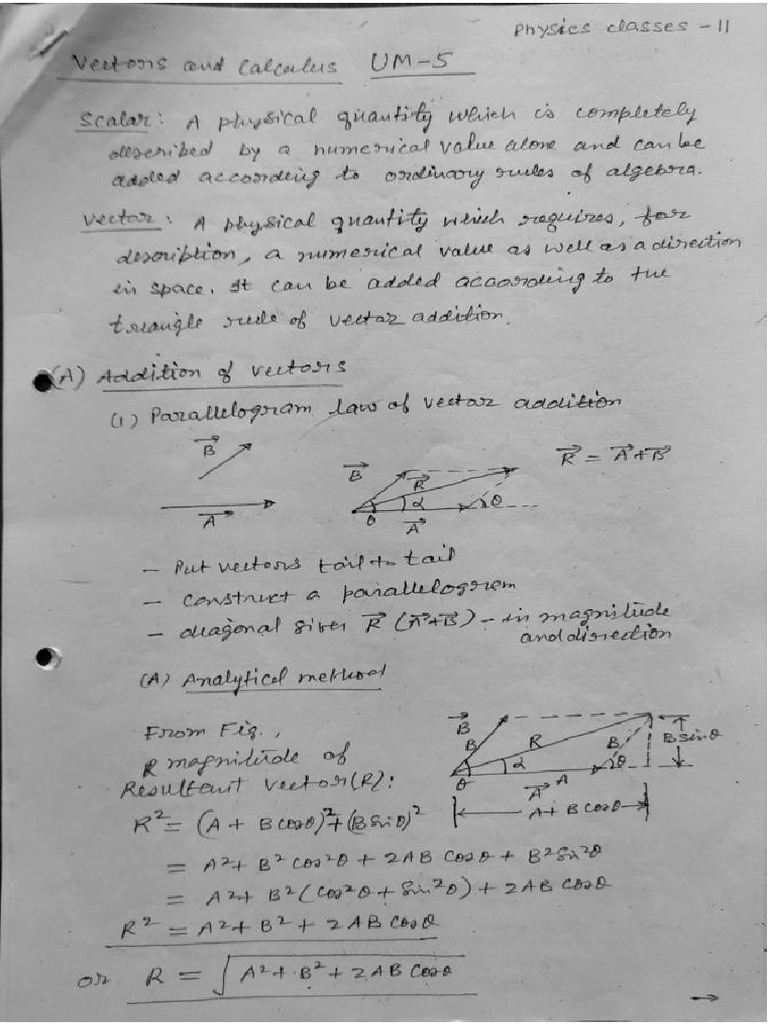 Physics classes - 11
Vectors and Calculus UM-5
Scalar: A physical quantity which is completely
described by a numerical value alone and can be
added according to ordinary rules of algebra.
Vector: A physical quantity which requires, for
description, a numerical value as well as a direction
in space. It can be added according to the
triangle rule of vector addition.
(A) Addition of vectors
(1) Parallelogram law of vector addition
B⃗ B⃗ R⃗ R⃗ = A⃗+B⃗
A⃗ θ A⃗ α θ
- Put vectors tail to tail
- construct a parallelogram
- diagonal gives R⃗ (A⃗+B⃗) - in magnitude
and direction
(A) Analytical method
From Fig.,
R magnitude of
Resultant vector (R):
B⃗ B R B B sinθ
θ α A θ
A⃗
A + B cosθ
R² = (A + B cosθ)² + (B sinθ)²
= A² + B² cos²θ + 2AB cosθ + B² sin²θ
= A² + B² (cos²θ + sin²θ) + 2AB cosθ
R² = A² + B² + 2AB cosθ
or R = √A² + B² + 2AB cosθ
→